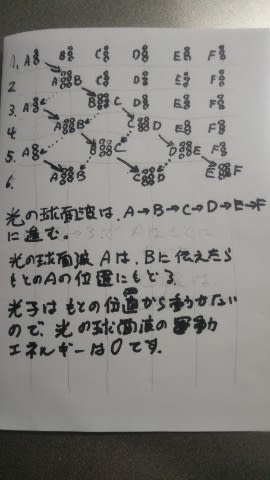 1, A B C D E F
2. A B C D E F
3. A B C D E F
4 A B C D E F
5. A B C D E F
6. A B C D E F
光の球面波は、A→B→C→D→E→F
に進む。
光の球面波Aは、Bに伝えたら
もとのAの位置にもどる
光子はもとの位置から動かない
ので、光の球面波の運動
エネルギーは0です.